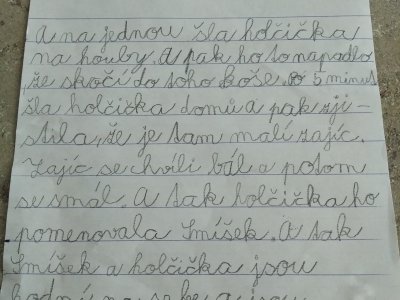 A na jednou šla holčička
na houby. A pak ho to napadlo
že skočí do toho koše. o 5 minut
šla holčička domů a pak zji-
stila, že je tam malí zajíc.
Zajíc se chvíli bál a potom
se smál. A tak holčička ho
pomenovala Smíšek. A tak
Smíšek a holčička jsou
hodní na sebe a jsou